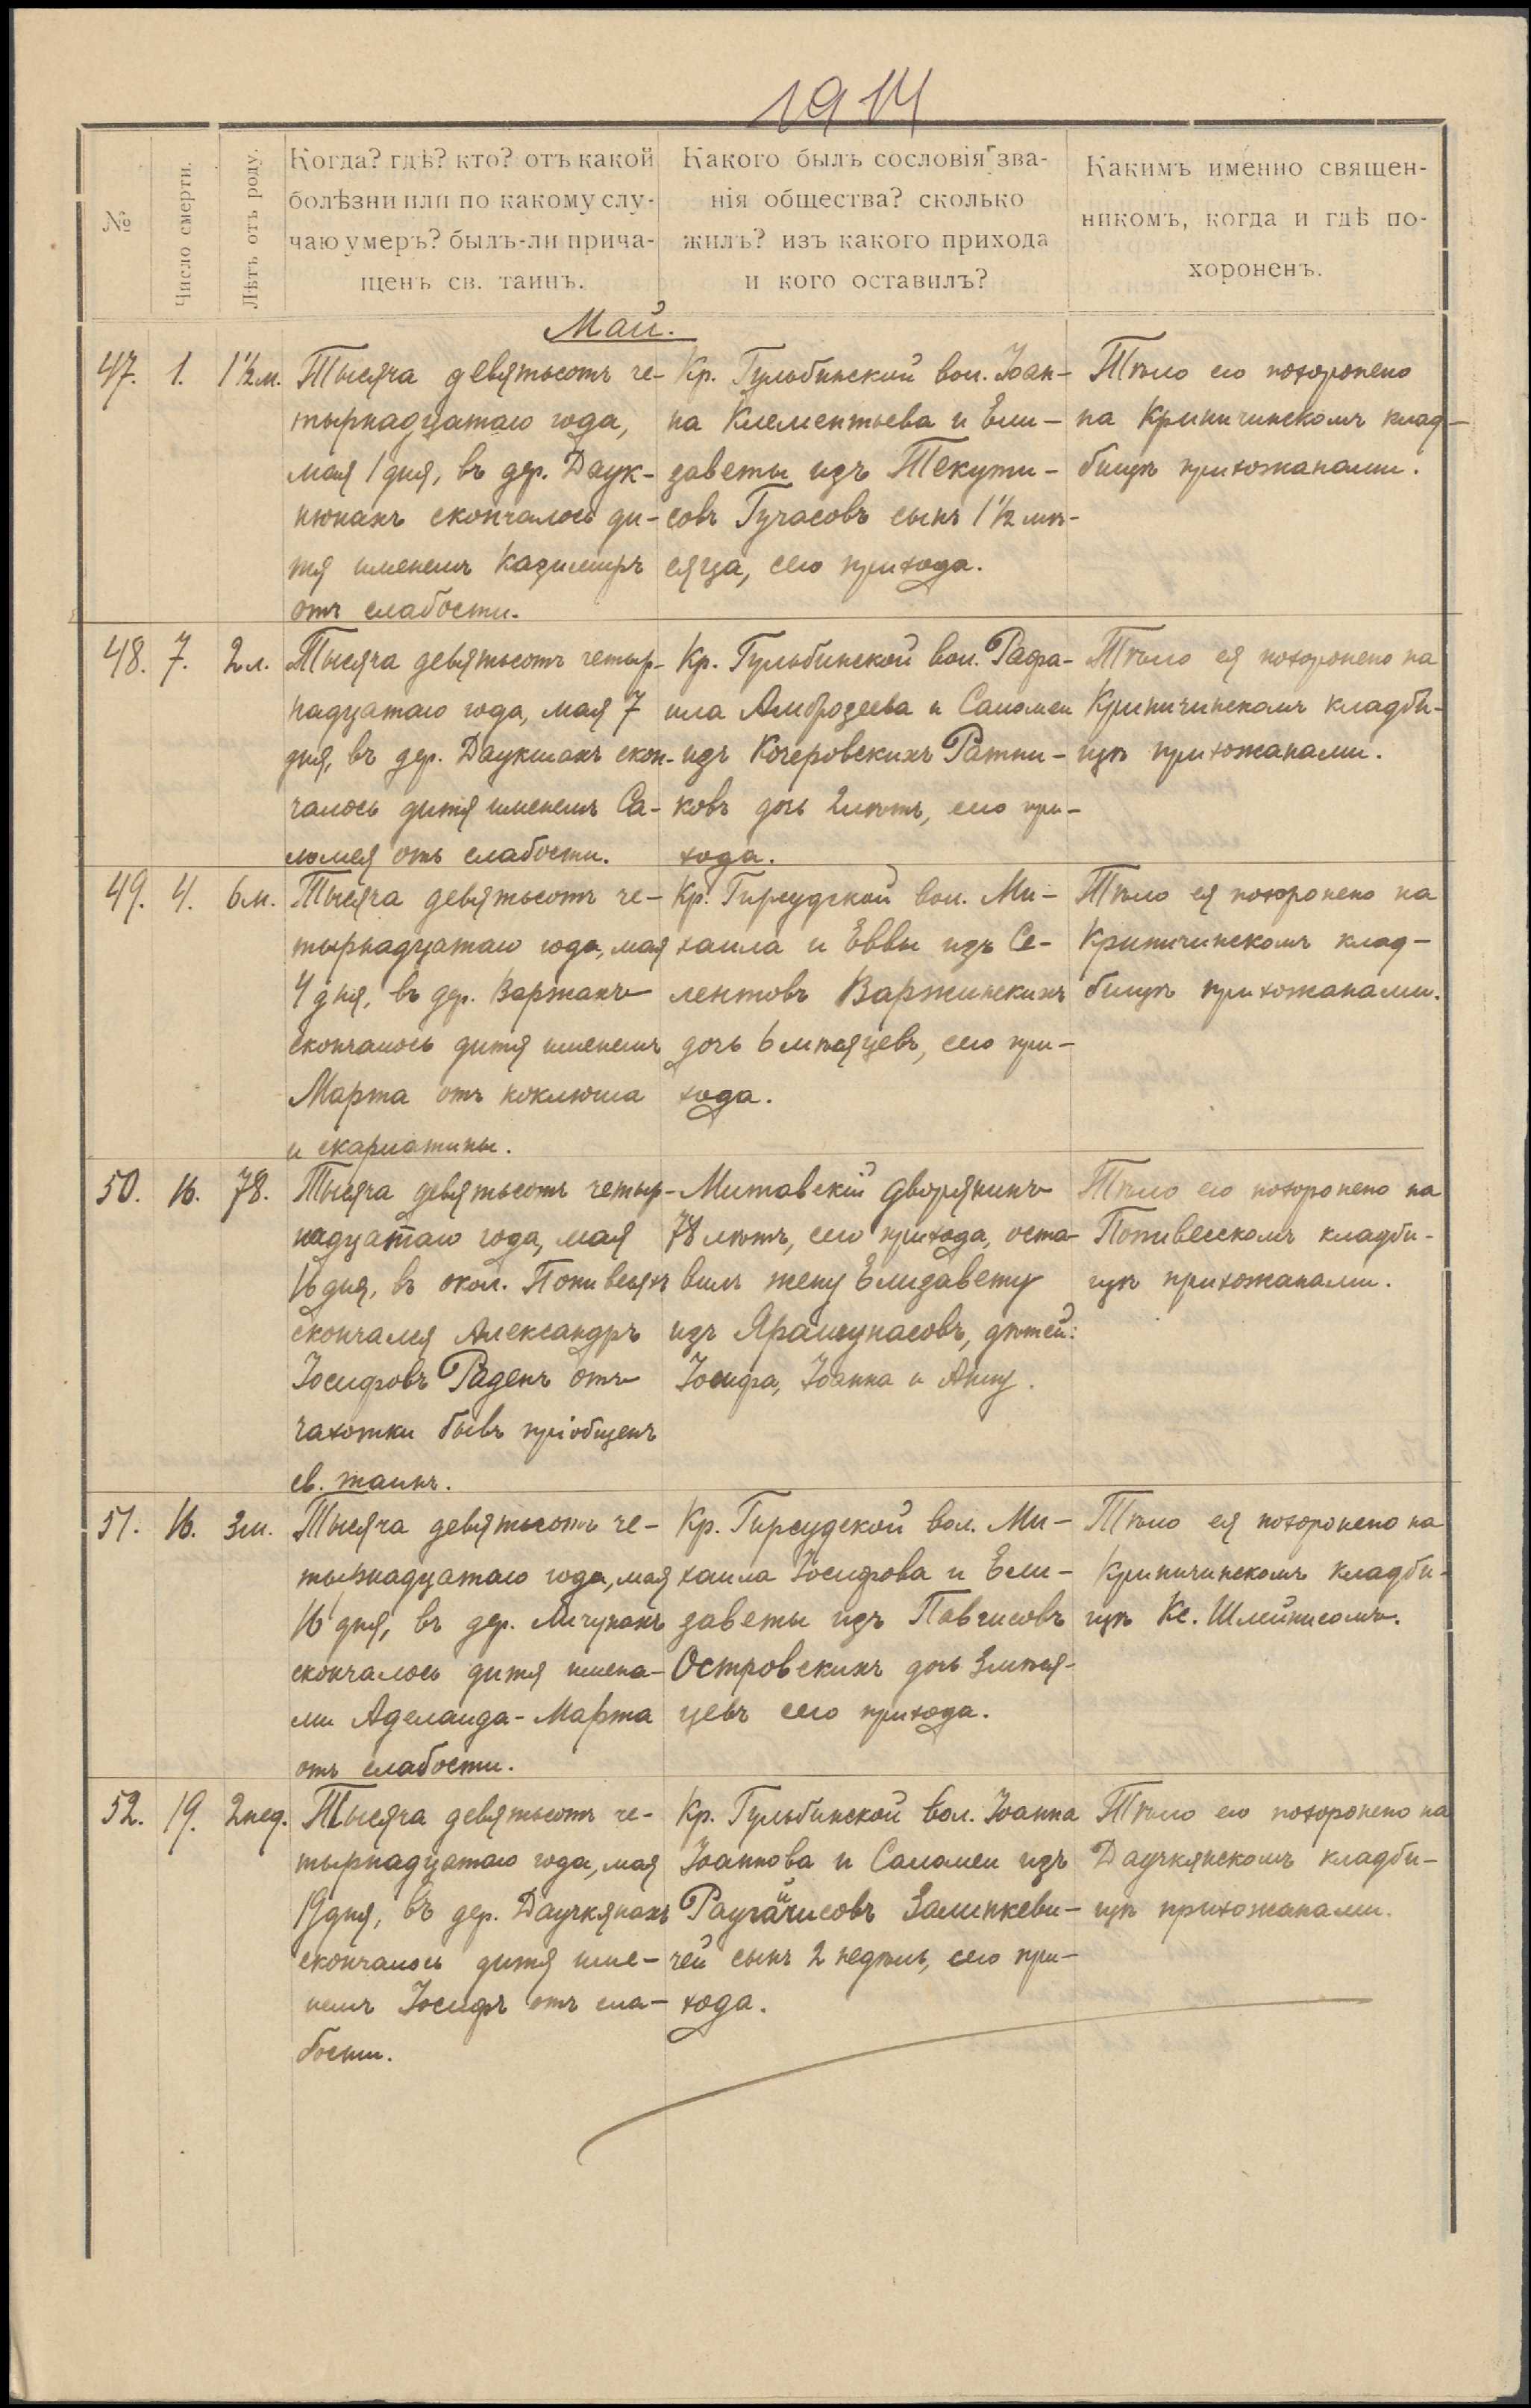 1914
№
Число смерти.
Лѣтъ отъ роду.
Когда? гдѣ? кто? отъ какой
болѣзни или по какому слу-
чаю умеръ? былъ-ли прича-
щенъ св. таинъ.
Какого былъ сословія зва-
нія общества? сколько
жилъ? изъ какого прихода
и кого оставилъ?
Какимъ именно священ-
никомъ, когда и гдѣ по-
хороненъ.
Май.
47. 1. 1½ м.
Тысяча девятьсотъ че-
тырнадцатаго года,
мая 1 дня, въ дер. Даук-
нюнахъ скончалось ди-
тя именемъ Казимиръ
отъ слабости.
Кр. Гульбинской вол. Іоан-
на Клементьева и Ели-
заветы изъ Текути-
совъ Гучасовъ сынъ 1½ мѣ-
сяца, сего прихода.
Тѣло его похоронено
на Криничинскомъ клад-
бищѣ прихожанами.
48. 7. 2 л.
Тысяча девятьсотъ четыр-
надцатаго года, мая 7
дня, въ дер. Даукшахъ скон-
чалось дитя именемъ Са-
ломея отъ слабости.
Кр. Гульбинской вол. Рафа-
ила Амброзеева и Саломеи
изъ Кочеровскихъ Ратни-
ковъ дочь 2 лѣтъ, сего при-
хода.
Тѣло ея похоронено на
Криничинскомъ кладби-
щѣ прихожанами.
49. 4. 6 м.
Тысяча девятьсотъ че-
тырнадцатаго года, мая
4 дня, въ дер. Варжахъ
скончалось дитя именемъ
Марта отъ коклюша
и скарлатины.
Кр. Гирсудской вол. Ми-
хаила и Еввы изъ Се-
лентовъ Варжинскихъ
дочь 6 мѣсяцевъ, сего при-
хода.
Тѣло ея похоронено на
Криничинскомъ клад-
бищѣ прихожанами.
50. 16. 78.
Тысяча девятьсотъ четыр-
надцатаго года, мая
16 дня, въ окол. Попивесяхъ
скончался Александръ
Іосифовъ Раденъ отъ
чахотки бывъ пріобщенъ
св. таинъ.
Митавскій дворянинъ
78 лѣтъ, сего прихода, оста-
вилъ жену Елизавету
изъ Ярашунасовъ, дѣтей:
Іосифа, Іоанна и Анну.
Тѣло его похоронено на
Попивесскомъ кладби-
щѣ прихожанами.
51. 16. 3 м.
Тысяча девятьсотъ че-
тырнадцатаго года, мая
16 дня, въ дер. Мичунахъ
скончалось дитя имена-
ми Аделаида-Марта
отъ слабости.
Кр. Гирсудской вол. Ми-
хаила Іосифова и Ели-
заветы изъ Павгисовъ
Островскихъ дочь 3 мѣся-
цевъ сего прихода.
Тѣло ея похоронено на
Криничинскомъ кладби-
щѣ Кс. Шлейнисомъ.
52. 19. 2 нед.
Тысяча девятьсотъ че-
тырнадцатаго года, мая
19 дня, въ дер. Даучкянахъ
скончалось дитя име-
немъ Іосифъ отъ сла-
бости.
Кр. Гульбинской вол. Іоанна
Іоаннова и Саломеи изъ
Залинкеви-
чей сынъ 2 недѣль, сего при-
хода.
Тѣло его похоронено на
Даучкянскомъ кладби-
щѣ прихожанами.